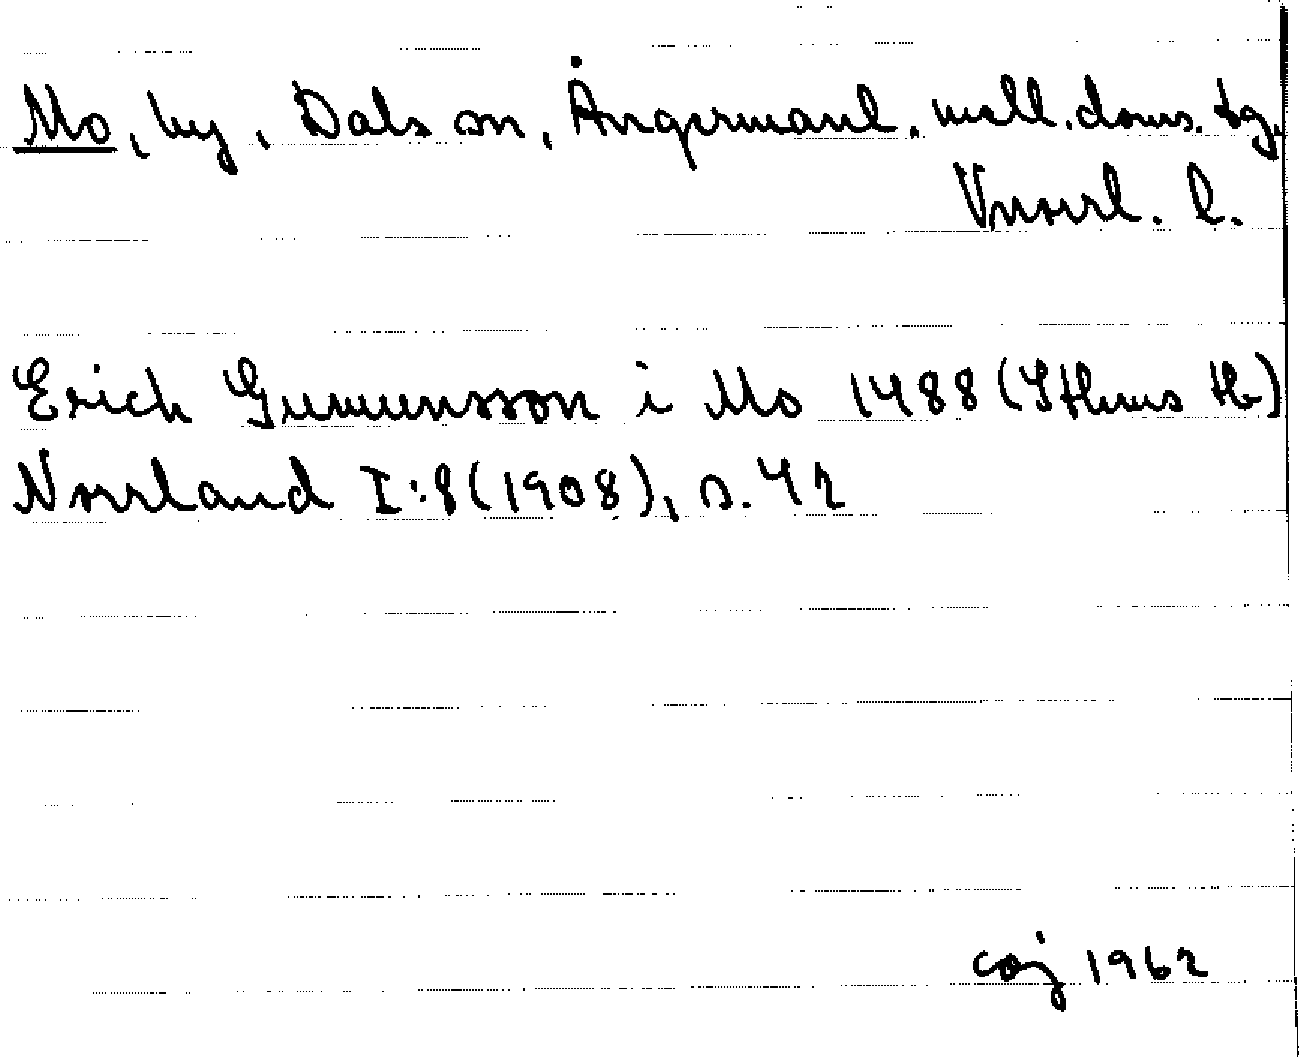 Mo, by, Dals sn, Ångermanl. mell. doms. tg,
Vnorrl. l.
Erich Gunnunsson i Mo 1488 (Sthms tb)
Norrland I:8 (1908), s. 42
coj 1962